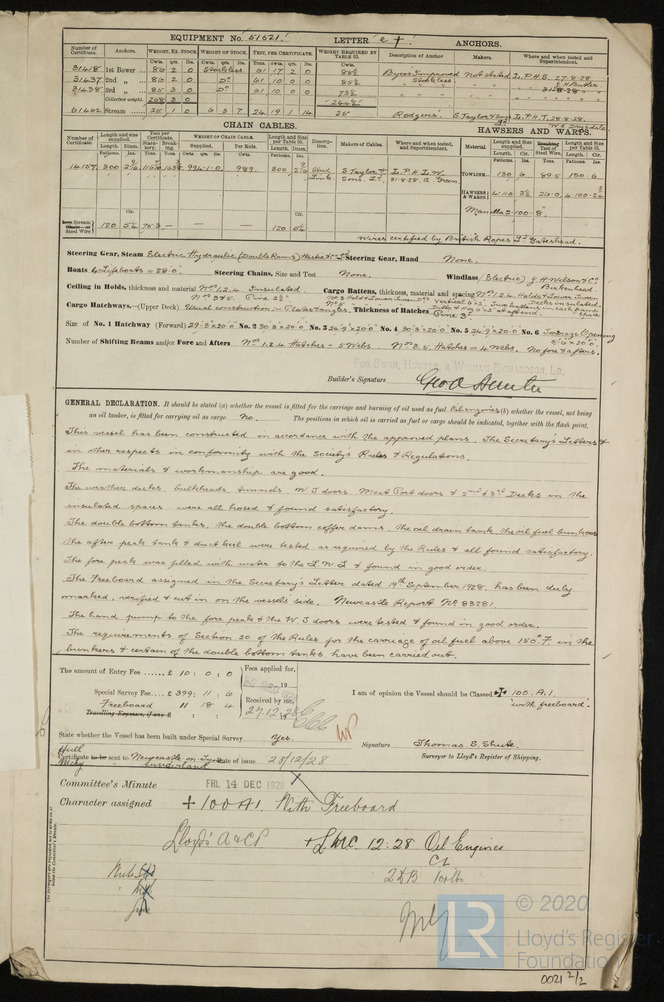 EQUIPMENT No. 51521. LETTER e † ANCHORS.
Number of Certificate. Anchors. WEIGHT, EX. STOCK. WEIGHT OF STOCK. TEST, PER CERTIFICATE. WEIGHT REQUIRED BY TABLE 53. Description of Anchor Makers. Where and when tested and Superintendent.
Cwts. qrs. lbs. Cwts. qrs. lbs. Tons. cwts. qrs. lbs. Cwts.
31418 1st Bower ... 86 2 0 Stockless 61 17 2 0 Byers Improved Not Stated L.P.H.S. 27.8.28
31437 2nd „ ... 86 2 0 Do 61 10 0 0 Stockless J.H. Butler
31438 3rd „ ... 85 3 0 Do 61 10 0 0 31.8.28
Collective weight. 258 3 0
61462 Stream ... 25 1 0 6 3 7 24 19 1 14 25 Rodgers.
CHAIN CABLES. HAWSERS AND WARPS.
Number of Certificate. Length and size supplied. Test per Certificate. WEIGHT OF CHAIN CABLE. Length and Size per Table 53. Description. Makers of Cables. Where and when tested, and Superintendent. Material Length and Size supplied. Test of Steel Wire. Length and Size per Table 53.
Fathoms. Ins. Statutory. Breaking. Supplied. Per Rule. Length. Diam.
Tons. Tons. Cwts. qrs. lbs. Cwts. Fathoms. Ins.
14157 300 994-1-0 989. 300 Stud Link S Taylor & Sons Ld L.P.H.W. 31.8.28 A Green
TOWLINE 130 6 89.5 130 6
HAWSERS & WARPS 4-110 26.0
Manilla 2-100-8.
Iron Stream Chain or Steel Wire 120 5¼ 75.3 120 5¼
Wires certified by British Ropes Ld Gateshead.
Steering Gear, Steam Electric Hydraulic (Double Rams) Hastie & Co Ld Steering Gear, Hand None.
Boats 4 Lifeboats = 28.0. Steering Chains, Size and Test None. Windlass (Electric) J H Wilson & Co Birkenhead.
Ceiling in Holds, thickness and material Nos 1.2.4. Insulated. Cargo Battens, thickness, material and spacing Nos 1.2.4. Holds & Lower Tween
Nos 3 & 5. Pine 2½"
Cargo Hatchways.—(Upper Deck) Usual construction - Plates & angles. Thickness of Hatches Pine 3"
Size of No. 1 Hatchway (Forward) 29'-3"x20'0" No. 2 30'3"x20'0" No. 3 No. 4 30'3"x20'0" No. 5 No. 6 Tonnage Opening
Number of Shifting Beams and/or Fore and Afters Nos 1.2.4. Hatches = 5 Webs. Nos 3.5. Hatches = 4 Webs. No fore & afters.
FOR SWAN, HUNTER, & WIGHAM RICHARDSON, LD.
Builder's Signature Geo A Hunter
GENERAL DECLARATION. It should be stated (a) whether the vessel is fitted for the carriage and burning of oil used as fuel Oil engines (b) whether the vessel, not being
an oil tanker, is fitted for carrying oil as cargo No. The positions in which oil is carried as fuel or cargo should be indicated, together with the flash point.
This vessel has been constructed in accordance with the approved plans. The Secretary's Letters &
in other respects in conformity with the Society's Rules & Regulations.
The materials & workmanship are good.
The weather decks, bulkheads tunnels W T doors, Meat Port doors & 2nd & 3rd Decks in the
insulated spaces were all hosed & found satisfactory.
The double bottom tanks, the double bottom coffer dams, the oil drain tank, the oil fuel bunkers
The after peak tank & duct keel were tested as required by the Rules & all found satisfactory.
The fore peak was filled with water to the L.W.L & found in good order.
The Freeboard assigned in the Secretary's Letter dated 19th September 1928, has been duly
marked, verified & cut in on the vessel's side. Newcastle Report No 83281.
The hand pump to the fore peak & the W T doors were tested & found in good order.
The requirements of Section 20 of the Rules for the carriage of oil fuel above 150° F. in the
bunkers & certain of the double bottom tanks, have been carried out.
The amount of Entry Fee .... £ 10 : 0 : 0 Fees applied for.
Special Survey Fee.... £ 399 : 11 : 6
Freeboard 11 18 4 Received by me,
Travelling Expenses, if any £ 27.12.28
I am of opinion the Vessel should be Classed ✠ 100. A. 1.
"with freeboard".
State whether the Vessel has been built under Special Survey Yes.
Signature Thomas S. Shute.
Surveyor to Lloyd's Register of Shipping.
Hull
Certificate to be sent to Newcastle-on-Tyne Date of issue 28/12/28
Mchy Sunderland
Committee's Minute FRI. 14 DEC 1928
Character assigned + 100 A1. With Freeboard
Lloyd's A & CP + LMC 12:28 Oil Engines
CL
2 DB
The Surveyors are requested not to write on or below the Committee's Minute.
LR © 2020
Lloyd's Register
Foundation
0021 2/2